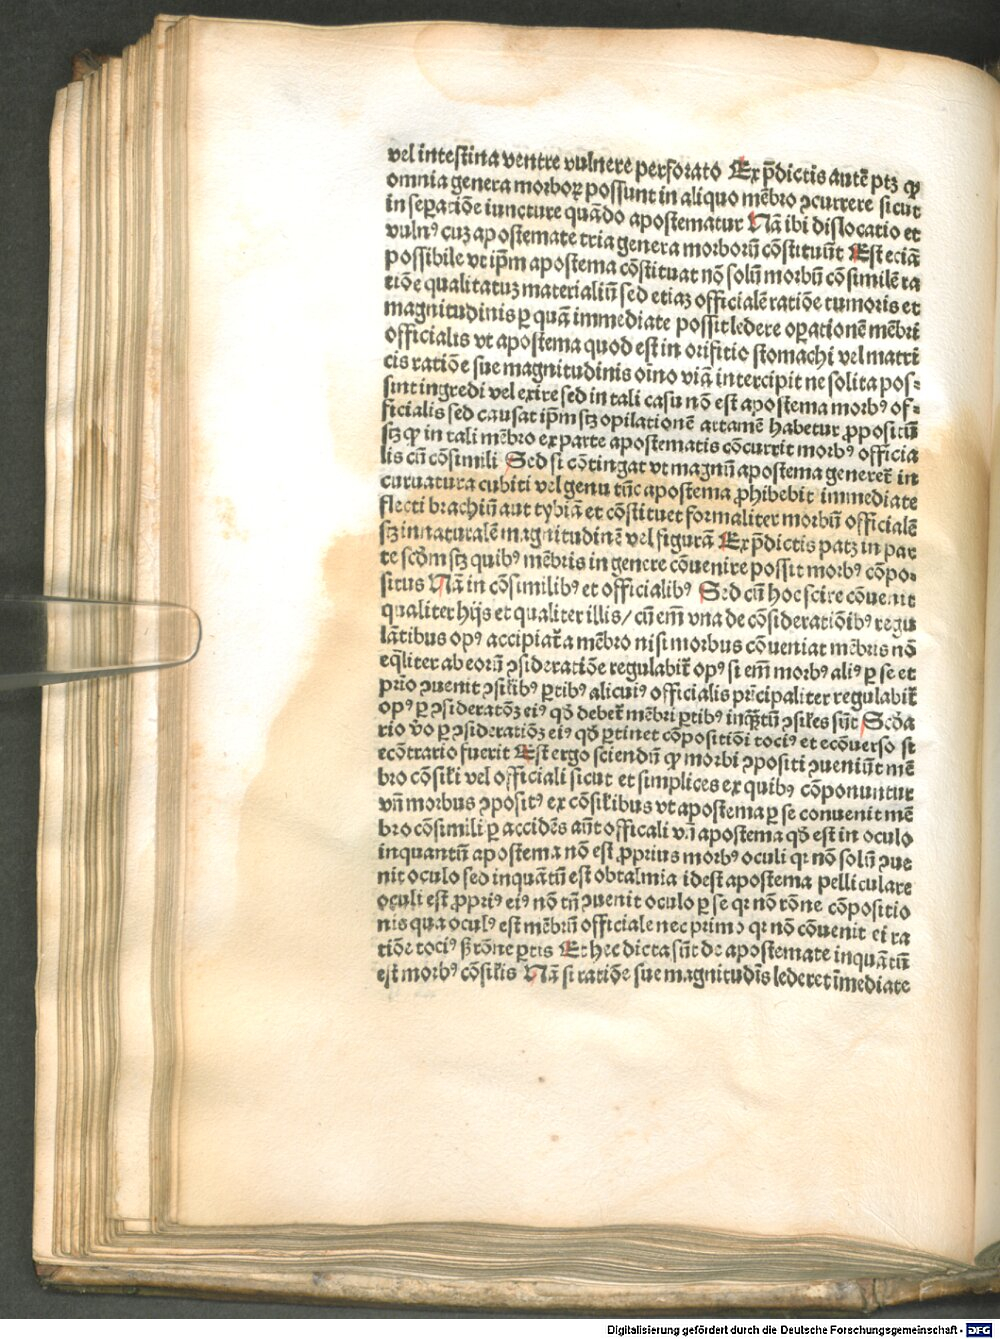 vel intestina ventre vulnere perforato Ex p̄dictis autē ptꝫ ꝙ
omnia genera morboꝝ possunt in aliquo mēbro ꝯcurrere sicut
in sepatiōe iuncture quādo apostematur Nā ibi dislocatio et
vulnꝰ cuꝫ apostemate tria genera morborū cōstituūt Est eciā
possibile vt ip̄m apostema cōstituat nō solū morbū cōsimilē ra
tiōe qualitatuꝫ materialiū sed etiaꝫ officialē ratiōe tumoris et
magnitudinis ꝑ quā immediate possit ledere oꝑationē mēbri
officialis vt apostema quod est in orifitio stomachi vel matri
cis ratiōe sue magnitudinis oīno viā intercipit ne solita pos⸗
sint ingredi vel exire sed in tali casu nō est apostema morbꝰ of⸗
ficialis sed causat ip̄m sꝫ opilationē attamē habetur ꝓpositū
sꝫ ꝙ in tali mēbro ex parte apostematis cōcurrit morbꝰ officia
lis cū cōsimili Sed si cōtingat vt magnū apostema generet̄ in
curuatura cubiti vel genu tūc apostema ꝓhibebit immediate
flecti brachiū aut tybiā et cōstituet formaliter morbū officialē
sꝫ innaturalē magnitudinē vel figurā Ex p̄dictis patꝫ in par
te scd̄m sꝫ quibꝰ mēbris in genere cōuenire possit morbꝰ cōpo⸗
situs Nā in cōsimilibꝰ et officialibꝰ Sed cū hoc scire cōuenit
qualiter hijs et qualiter illis/ cū em̄ vna de cōsideratiōibꝰ regu
lātibus opꝰ accipiat̄ a mēbro nisi morbus cōueniat mēbris nō
eq̄liter ab eorū ꝯsideratiōe regulabit̄ opꝰ si em̄ morbꝰ aliꝰ ꝑ se et
prīo ꝯuenit ꝯsilibꝰ ꝑtibꝰ alicuiꝰ officialis prīcipaliter regulabit̄
opꝰ ꝑ ꝯsideratōꝫ eiꝰ qd̄ debet̄ mēbri ꝑtibꝰ inq̄ꝫtū ꝯsiles sūt Scd̄a
rio v̄o ꝑ ꝯsideratiōꝫ eiꝰ qd̄ ꝑtinet cōpositiōi tociꝰ et ecōuerso si
ecōtrario fuerit Est ergo sciendū ꝙ morbi ꝯpositi ꝯueniūt mē
bro cōsili vel officiali sicut et simplices ex quibꝰ cōponuntur
vn̄ morbus ꝯpositꝰ ex cōsilibus vt apostema ꝑ se conuenit mē
bro cōsimili ꝑ accidēs aūt officali vn̄ apostema qd̄ est in oculo
inquantū apostema nō est ꝓprius morbꝰ oculi qꝛ nō solū ꝯue
nit oculo sed inquātū est obtalmia idest apostema pelliculare
oculi est ꝓpriꝰ eiꝰ nō tn̄ ꝯuenit oculo ꝑ se qꝛ nō rōne cōpositio
nis qua oculꝰ est mēbrū officiale nec primo qꝛ nō cōuenit ei ra
tiōe tociꝰ ß rōne ꝑtis Et hec dicta sūt de apostemate inquātū
est morbꝰ cōsilis Nā si ratiōe sue magnitudīs lederet īmediate
Digitalisierung gefördert durch die Deutsche Forschungsgemeinschaft - DFG